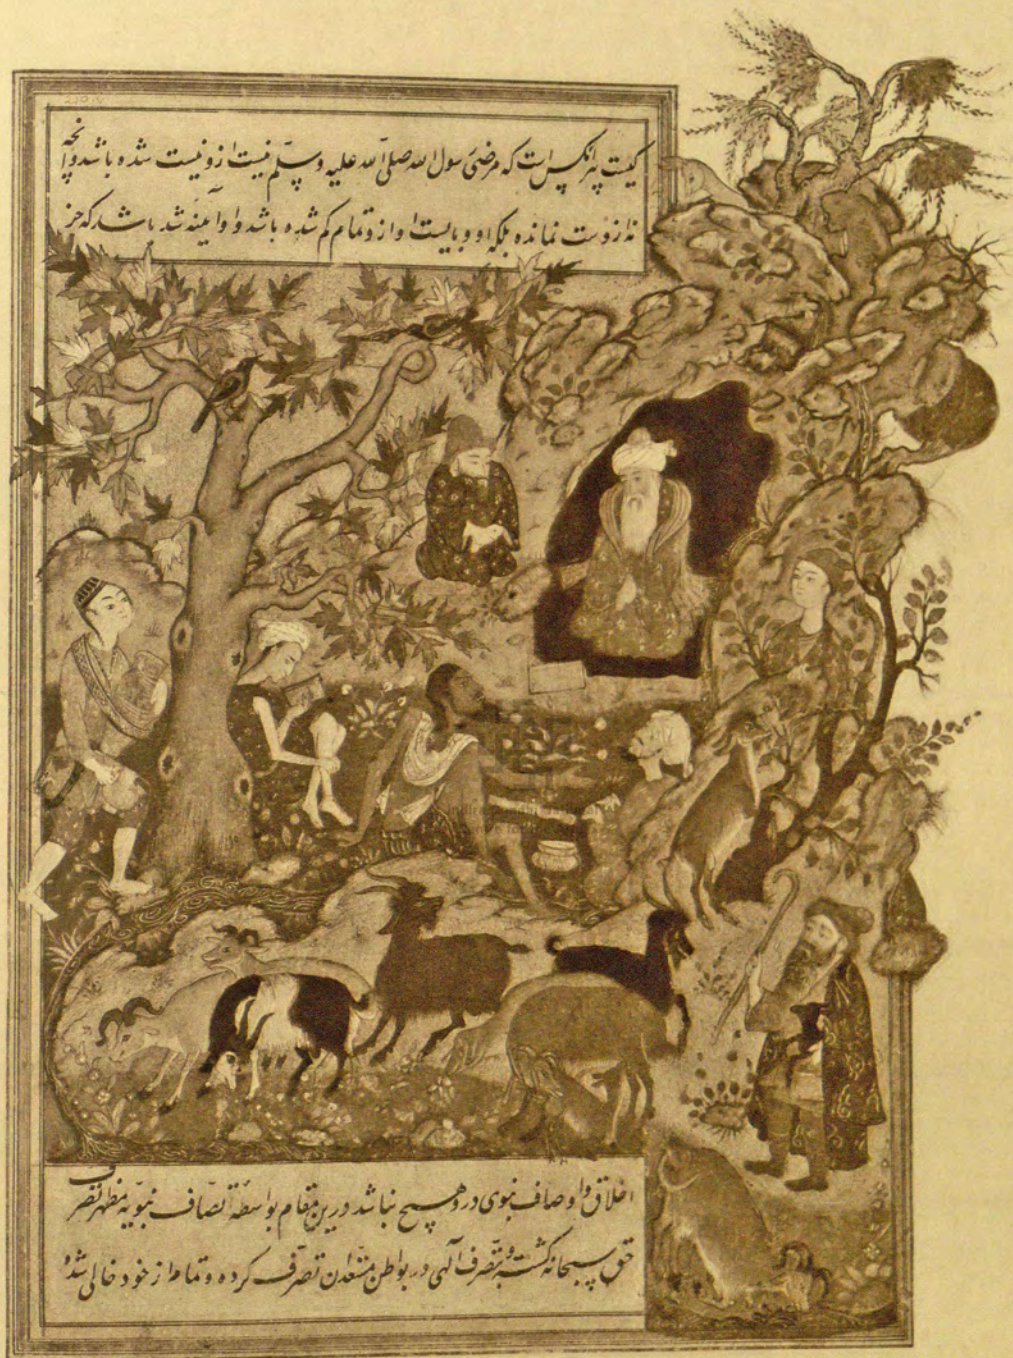 کیست پیر آنکس است که مرضیّ رسول الله صلی الله علیه وسلّم نیست ازو نیست شده باشد وآنچه
نه ازوست نمانده بلکه او و بایست او ازو تمام کم شده باشد و او آیینه شد باشد که جز
اخلاق و اوصاف نبوی درو هیچ نباشد درین مقام بواسطهٔ اتصاف نبویه مظهر تصرف
حق سبحانه گشته و بتصرف آلهی در بواطن مستعدان تصرف کرده و تمام از خود خالی شده